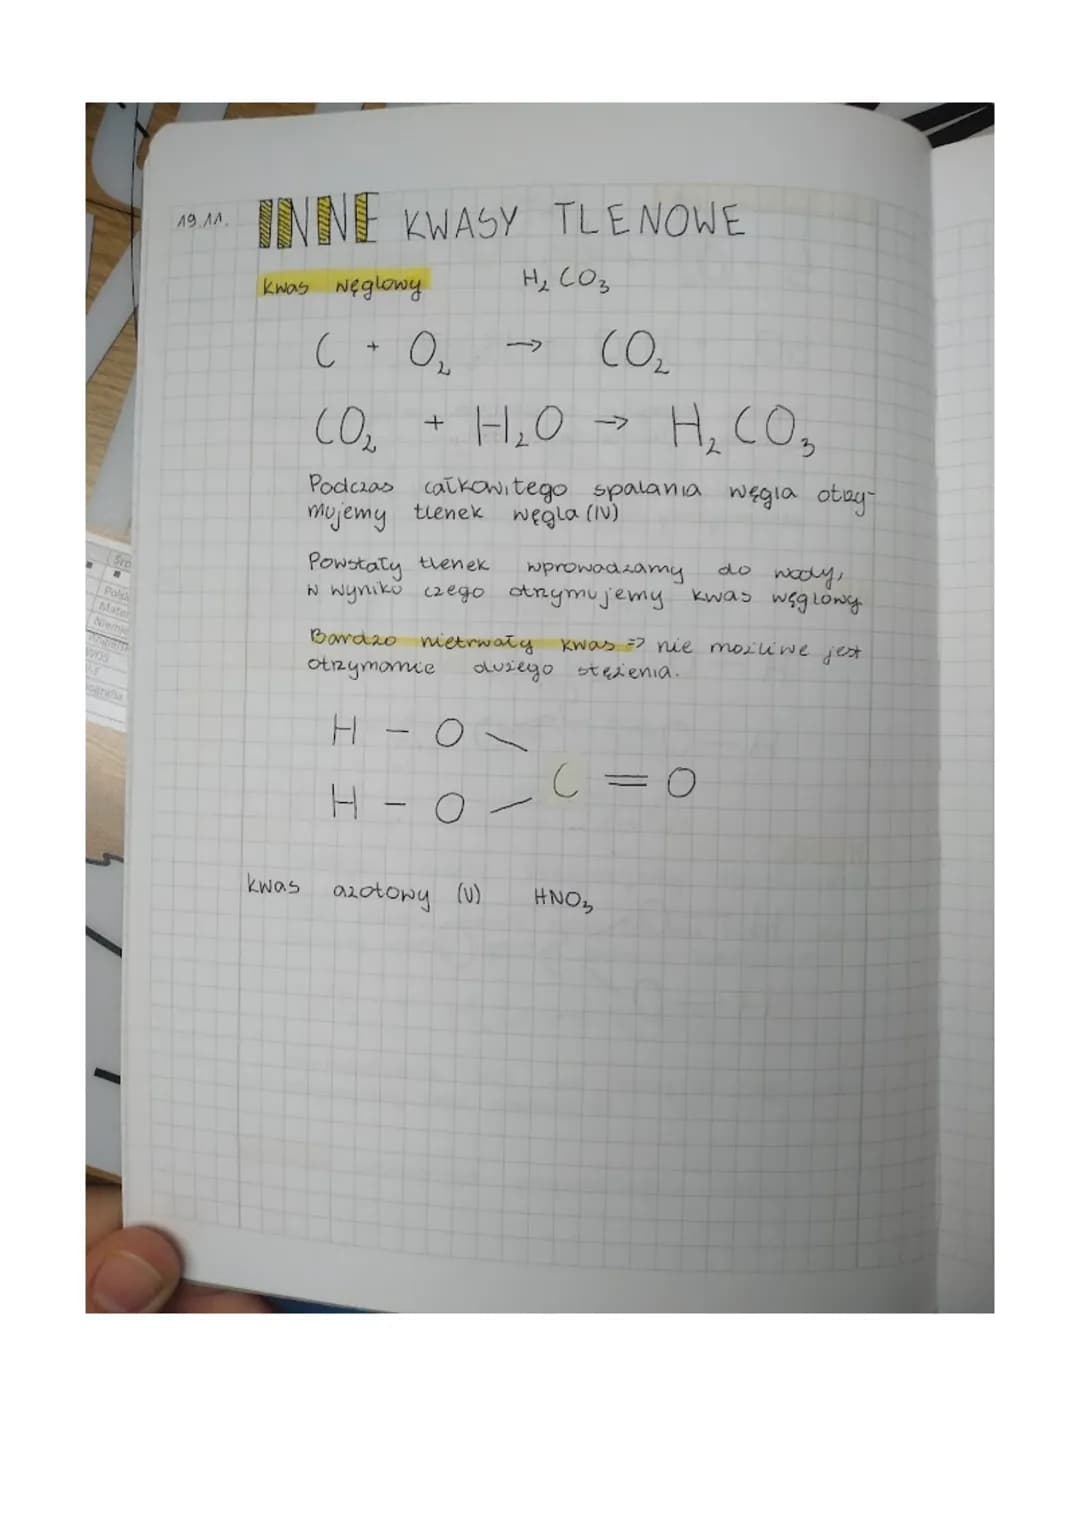 19.11. INNE KWASY TLENOWE
kwas węglowy H₂CO₃
C + O₂ → CO₂
CO₂ + H₂O → H₂CO₃
Podczas całkowitego spalania węgla otrzy-
mujemy tlenek węgla (IV)
Powstały tlenek wprowadzamy do wody,
w wyniku czego otrzymujemy kwas węglowy
Bardzo nietrwały kwas => nie możliwe jest
otrzymanie dużego stężenia.
H - O \
C = O
H - O /
kwas azotowy (V) HNO₃